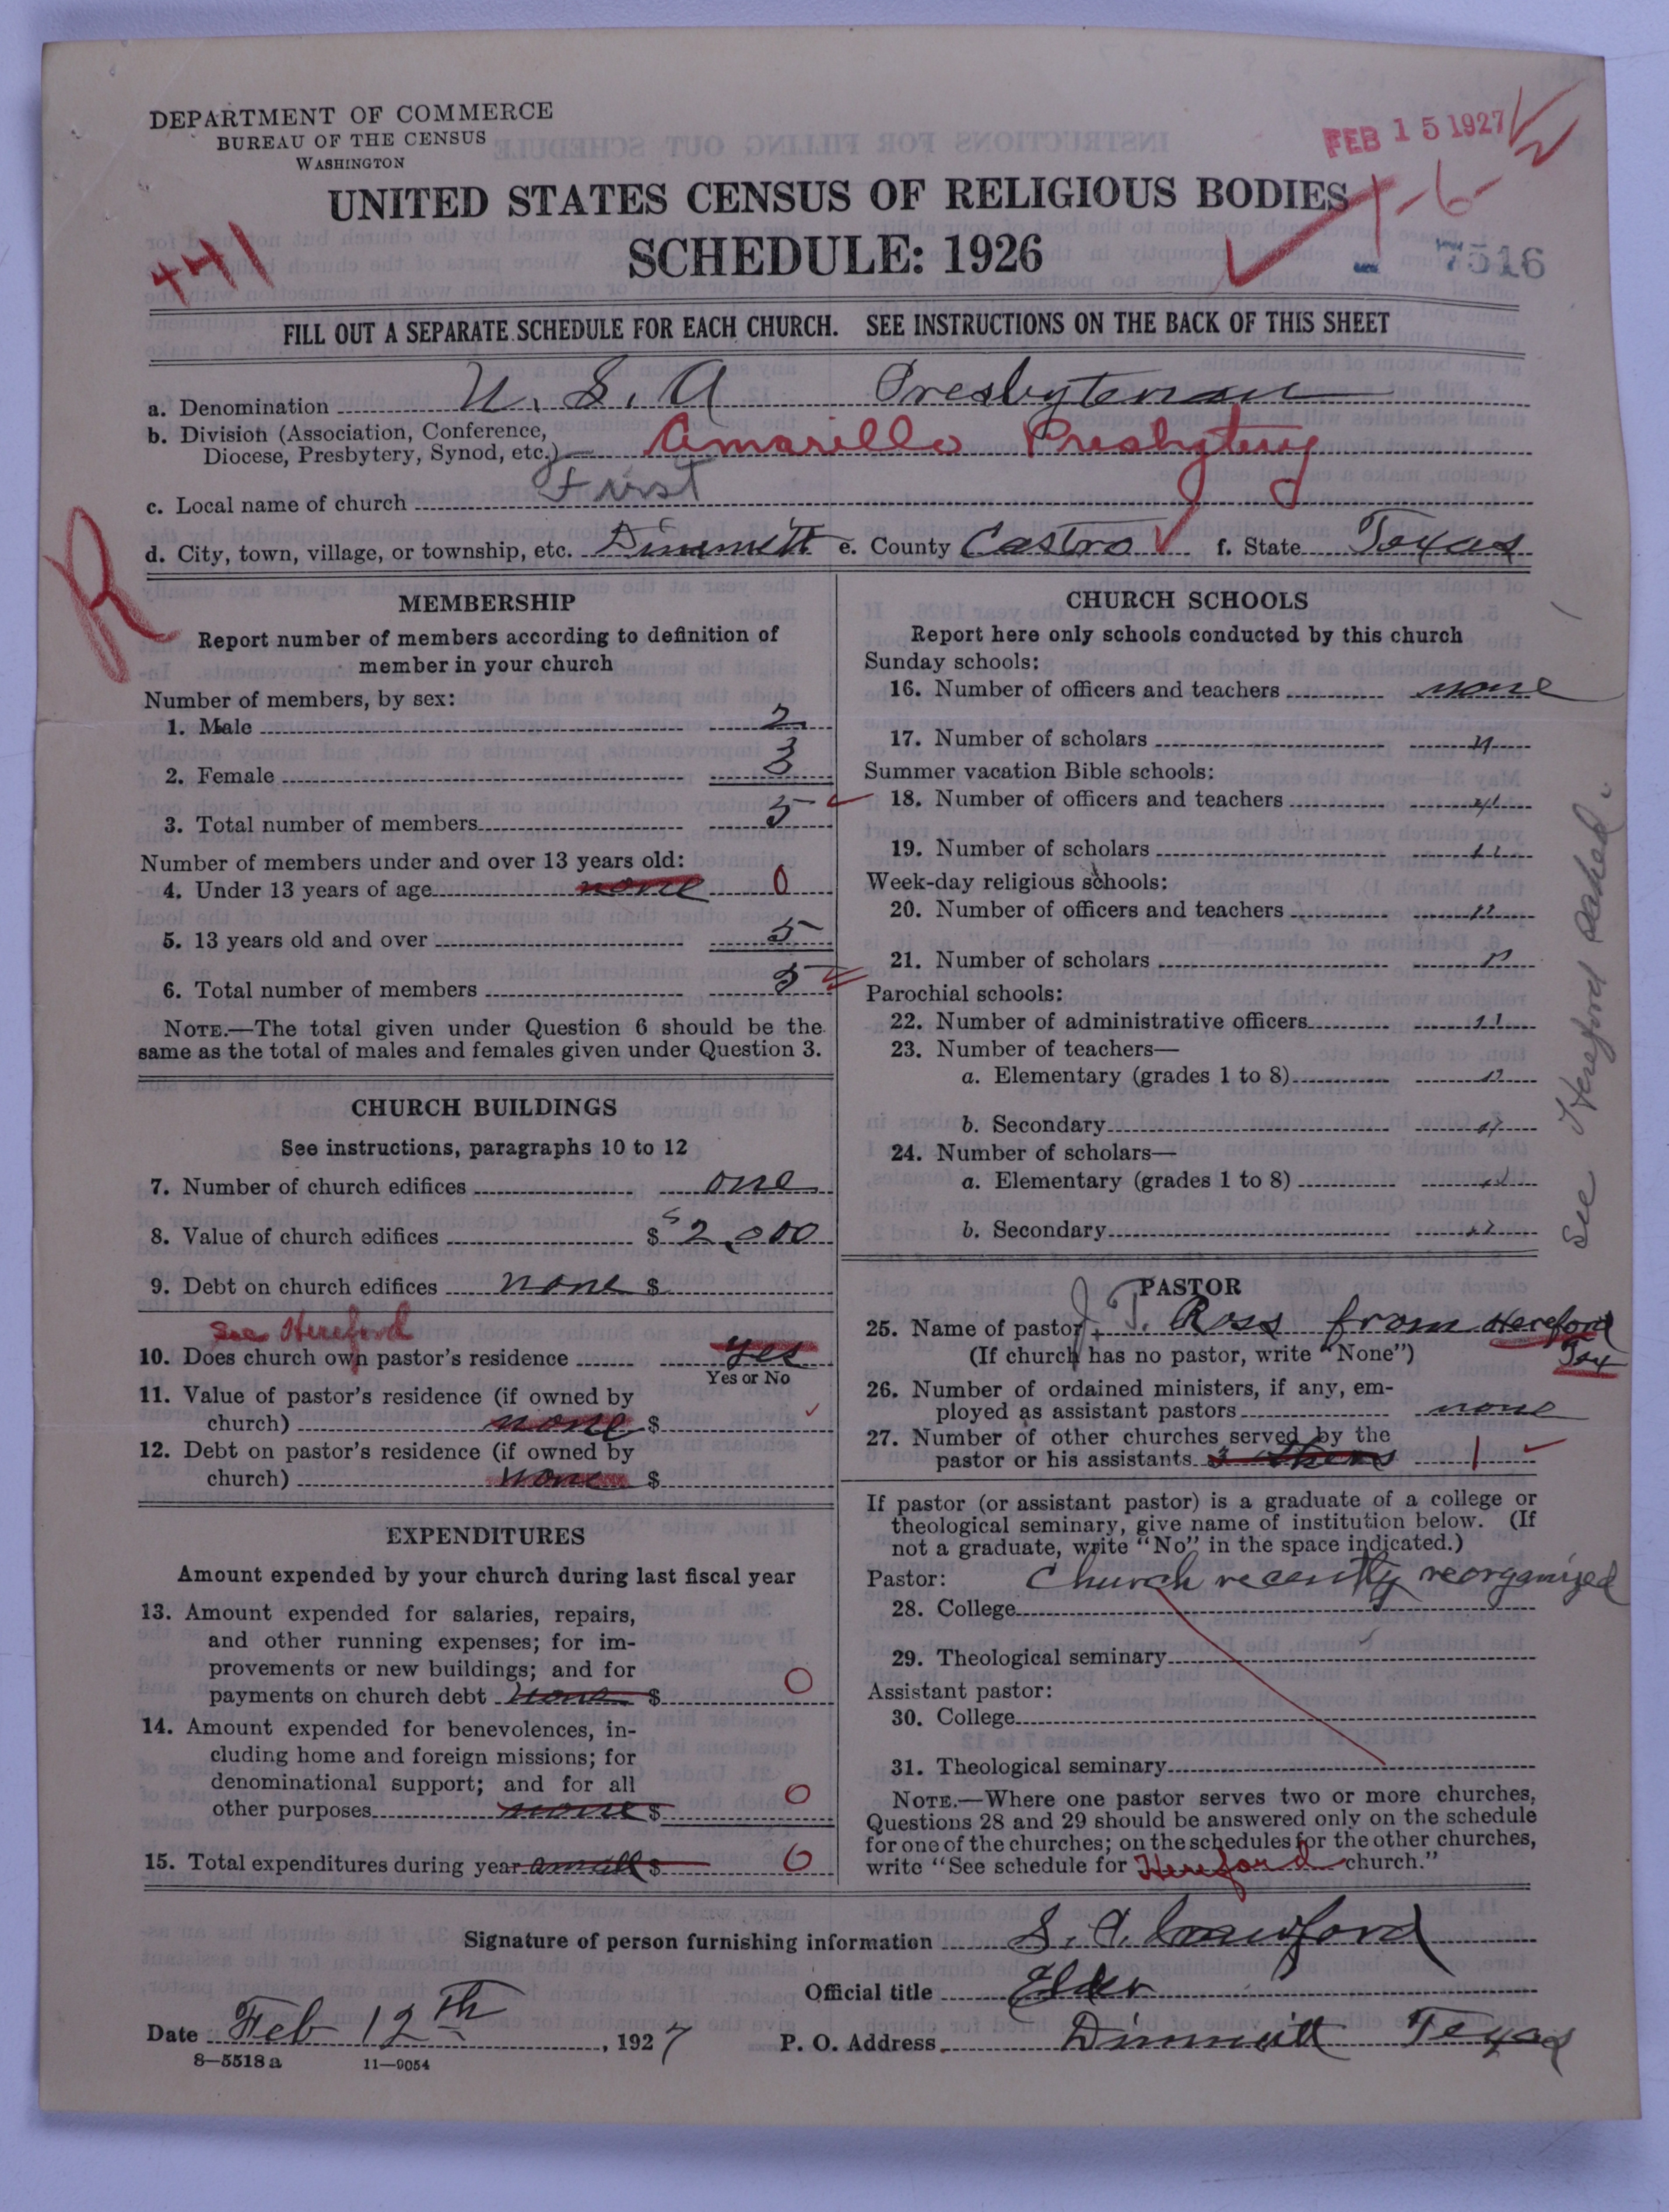 DEPARTMENT OF COMMERCE
BUREAU OF THE CENSUS
WASHINGTON
FEB 15 1927
UNITED STATES CENSUS OF RELIGIOUS BODIES
SCHEDULE: 1926
441
1-6-
7516
FILL OUT A SEPARATE SCHEDULE FOR EACH CHURCH. SEE INSTRUCTIONS ON THE BACK OF THIS SHEET
a. Denomination U. S. A Presbyterian
b. Division (Association, Conference,
Diocese, Presbytery, Synod, etc.) Amarillo Presbytery
c. Local name of church First
d. City, town, village, or township, etc. Dimmitt e. County Castro f. State Texas
R
MEMBERSHIP
Report number of members according to definition of
member in your church
Number of members, by sex:
1. Male 2
2. Female 3
3. Total number of members 5
Number of members under and over 13 years old:
4. Under 13 years of age none 0
5. 13 years old and over 5
6. Total number of members 5
NOTE.—The total given under Question 6 should be the
same as the total of males and females given under Question 3.
CHURCH BUILDINGS
See instructions, paragraphs 10 to 12
7. Number of church edifices one
8. Value of church edifices $ 2,000
9. Debt on church edifices none $
See Hereford
10. Does church own pastor's residence yes
Yes or No
11. Value of pastor's residence (if owned by
church) none $
12. Debt on pastor's residence (if owned by
church) none $
EXPENDITURES
Amount expended by your church during last fiscal year
13. Amount expended for salaries, repairs,
and other running expenses; for im-
provements or new buildings; and for
payments on church debt none $ 0
14. Amount expended for benevolences, in-
cluding home and foreign missions; for
denominational support; and for all
other purposes none $ 0
15. Total expenditures during year $ 0
CHURCH SCHOOLS
Report here only schools conducted by this church
Sunday schools:
16. Number of officers and teachers none
17. Number of scholars "
Summer vacation Bible schools:
18. Number of officers and teachers "
19. Number of scholars "
Week-day religious schools:
20. Number of officers and teachers "
21. Number of scholars "
Parochial schools:
22. Number of administrative officers "
23. Number of teachers—
a. Elementary (grades 1 to 8) "
b. Secondary "
24. Number of scholars—
a. Elementary (grades 1 to 8) "
b. Secondary "
See Hereford
PASTOR
25. Name of pastor J. T. Ross from Hereford
(If church has no pastor, write "None") Tex
26. Number of ordained ministers, if any, em-
ployed as assistant pastors none
27. Number of other churches served by the
pastor or his assistants 1
If pastor (or assistant pastor) is a graduate of a college or
theological seminary, give name of institution below. (If
not a graduate, write "No" in the space indicated.)
Pastor: Church recently reorganized
28. College
29. Theological seminary
Assistant pastor:
30. College
31. Theological seminary
NOTE.—Where one pastor serves two or more churches,
Questions 28 and 29 should be answered only on the schedule
for one of the churches; on the schedules for the other churches,
write "See schedule for Hereford church."
Signature of person furnishing information S. A. Crawford
Official title Elder
Date Feb 12th, 1927 P. O. Address Dimmitt Texas
8—5518a 11—9054